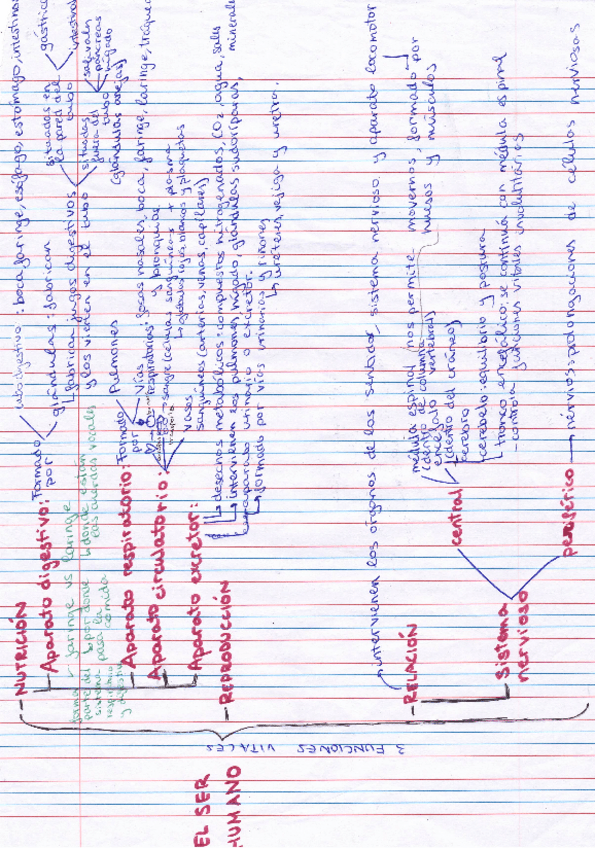 EL SER HUMANO
3 FUNCIONES VITALES
- NUTRICIÓN
- Aparato digestivo: Formado por
tubo digestivo: boca, faringe, esófago, estómago, intestino
glándulas: fabrican
fabrican jugos digestivos
y los vierten en el tubo
situadas en
la pared del
tubo
gástrica
intestinal
situadas
fuera del
tubo
(glándulas anejas)
salivales
páncreas
hígado
faringe vs laringe
parte del
sistema
respiratorio
y digestivo
por donde
pasa la
comida
donde están
las cuerdas vocales
- Aparato respiratorio: Formado por
Pulmones
Vías
respiratorias: fosas nasales, boca, faringe, laringe, tráquea
y bronquios.
- Aparato circulatorio:
sangre (células sanguíneas + plasma
glóbulos rojos, blancos y plaquetas
vasos
sanguíneos (arterias, venas, capilares)
- Aparato excretor:
desechos metabólicos: compuestos nitrogenados, CO2, agua, sales minerales
intervienen los pulmones, hígado, glándulas sudoríparas,
aparato urinario o excretor.
formado por vías urinarias y riñones
uréteres, vejiga y uretra.
- REPRODUCCIÓN
- RELACIÓN
intervienen los órganos de los sentidos, sistema nervioso y aparato locomotor
nos permite movernos, formado por
huesos y músculos
Sistema
nervioso
central
médula espinal
(dentro de columna
vertebral)
encéfalo
(dentro del cráneo)
cerebro
cerebelo: equilibrio y postura
tronco encefálico: se continúa con médula espinal
- controla funciones vitales involuntarias
periférico
nervios: prolongaciones de células nerviosas